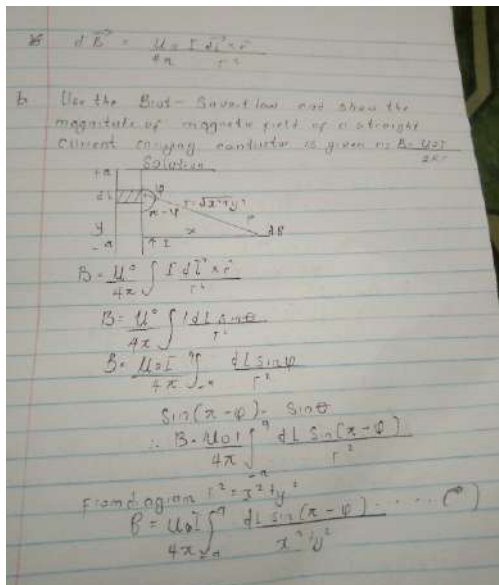 dB⃗ = μ₀ I dl⃗ × r̂
4π r²
b. Use the Biot-Savart law and show the
magnitude of magnetic field of a straight
current carrying conductor is given as B = μ₀I
2πr
Solution
+a
dL φ
π-φ r = √x²+y²
y x dB
-a ↑ I
B = μ₀ ∫ I dl⃗ × r̂
4π r²
B = μ₀ ∫ IdL sinθ
4π r²
B = μ₀I ∫ᵃ₋ₐ dL sinφ
4π r²
Sin(π-φ) = Sinθ
∴ B = μ₀I ∫ᵃ₋ₐ dL Sin(π-φ)
4π r²
From diagram r² = x²+y²
B = μ₀I ∫ᵃ₋ₐ dL sin(π-φ) ......(*)
4π x²+y²